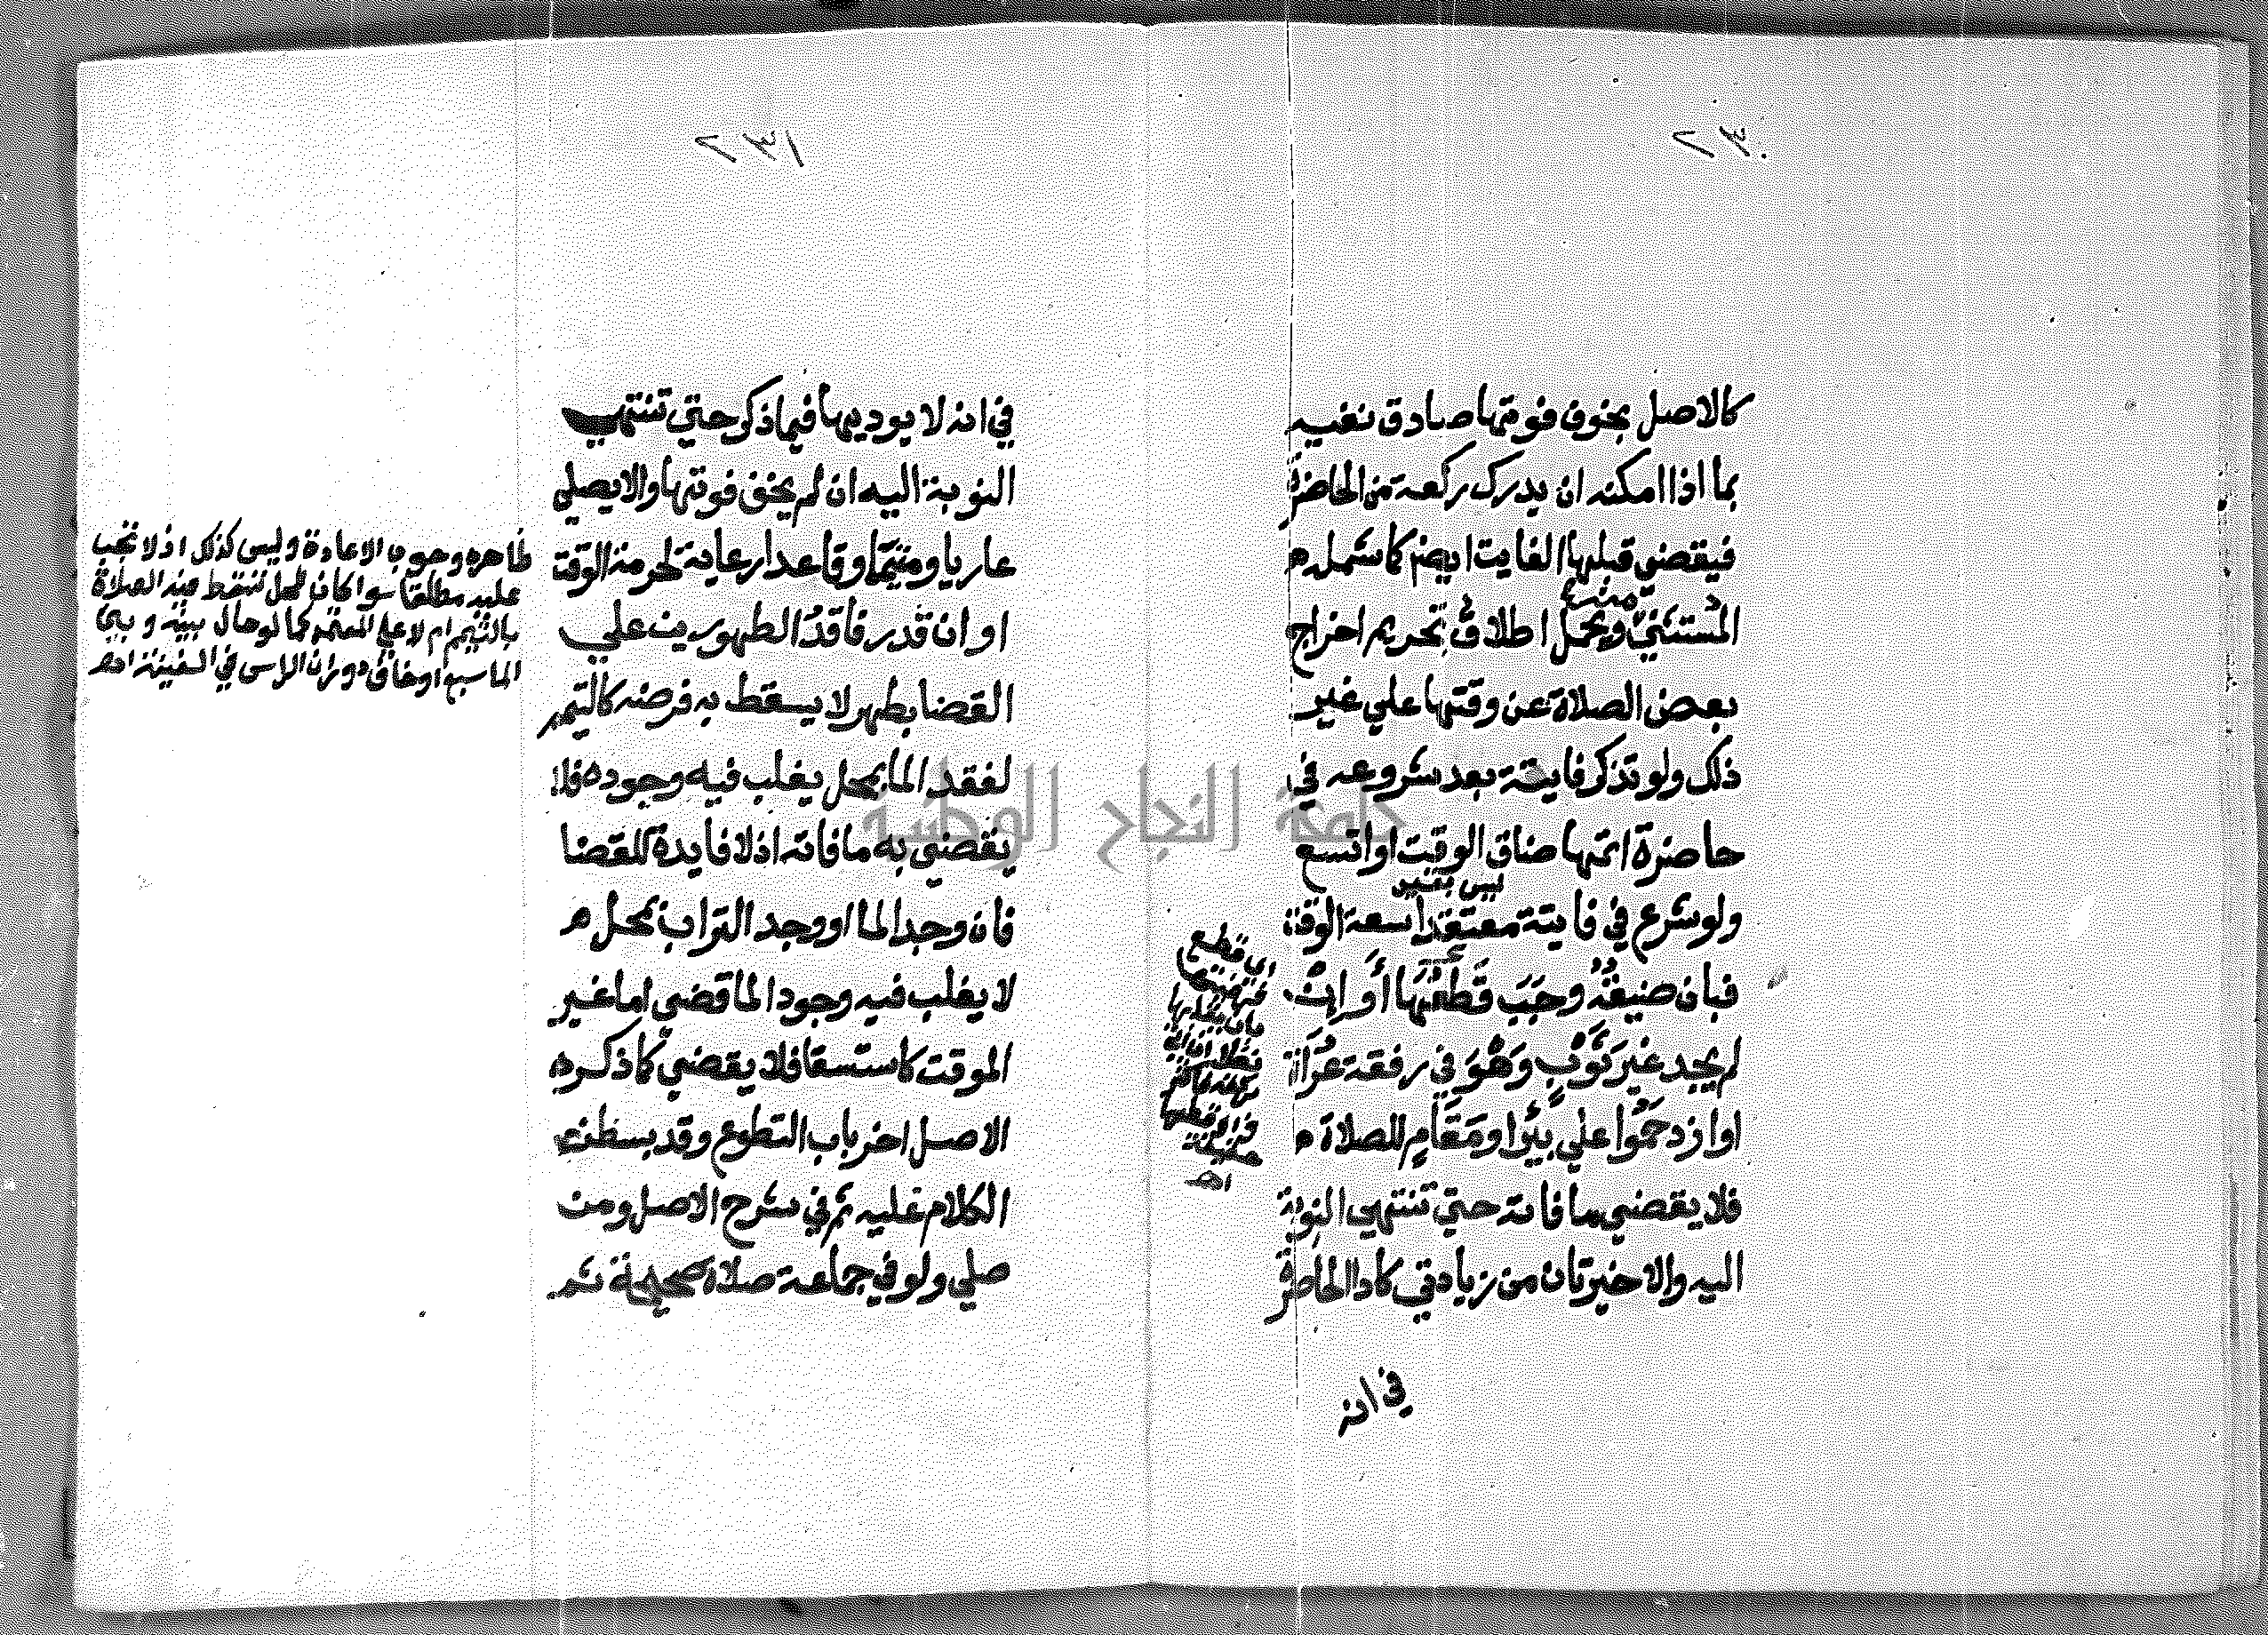 ٢٣٠
كالاصل بخوف فوتها صادق نفيه
بما اذا امكنه ان يدرك ركعة من الحاضرة
فيقضي قبلها الفايت ايضا كما شمله
المستثني منه ويحمل اطلاق تحريم اخراج
بعض الصلاة عن وقتها علي غير
ذلك ولو تذكر فايتة بعد شروعه في
حاضرة اتمها ضاق الوقت او اتسع
ولو شرع في فايتة معتقدا سعة الوقت
فبان ضيقه وجب قطعها او ان
لم يجد غير ثوب وهو في رفقة عراة
او ازدحموا علي بئر او مقام للصلاة
فلا يقضي ما فاته حتي تنتهي النوبة
اليه والاخيرتان من زيادتي كاداء الحاضرة
في انه
٢٣١
في انه لا يوديها فيما ذكر حتي تنتهي
النوبة اليه ان لم يخف فوتها والا يصلي
عاريا ومتيمما وقاعدا رعاية لحرمة الوقت
او ان قدر فاقد الطهورين علي
القضا بطهر لا يسقط به فرضه كالتيمم
لفقد الما بمحل يغلب فيه وجوده فلا
يقضي به ما فاته اذ لا فايدة للقضا
فان وجد الما او وجد التراب بمحل
لا يغلب فيه وجود الما قضي اما غير
الموقت كاستسقا فلا يقضي كما ذكره
الاصل اخر باب التطوع وقد بسطت
الكلام عليه ثم في شرح الاصل ومن
صلي ولو في جماعة صلاة صحيحة ثم
ظاهره وجوب الاعادة وليس كذلك اذ لا تجب
عليه مطلقا سوا كان المحل تسقط فيه الصلاة
بالتيمم ام لا علي المعتمد كما لو حال بينه وبين
الما سبع او خاف دوران الراس في السفينة اهـ